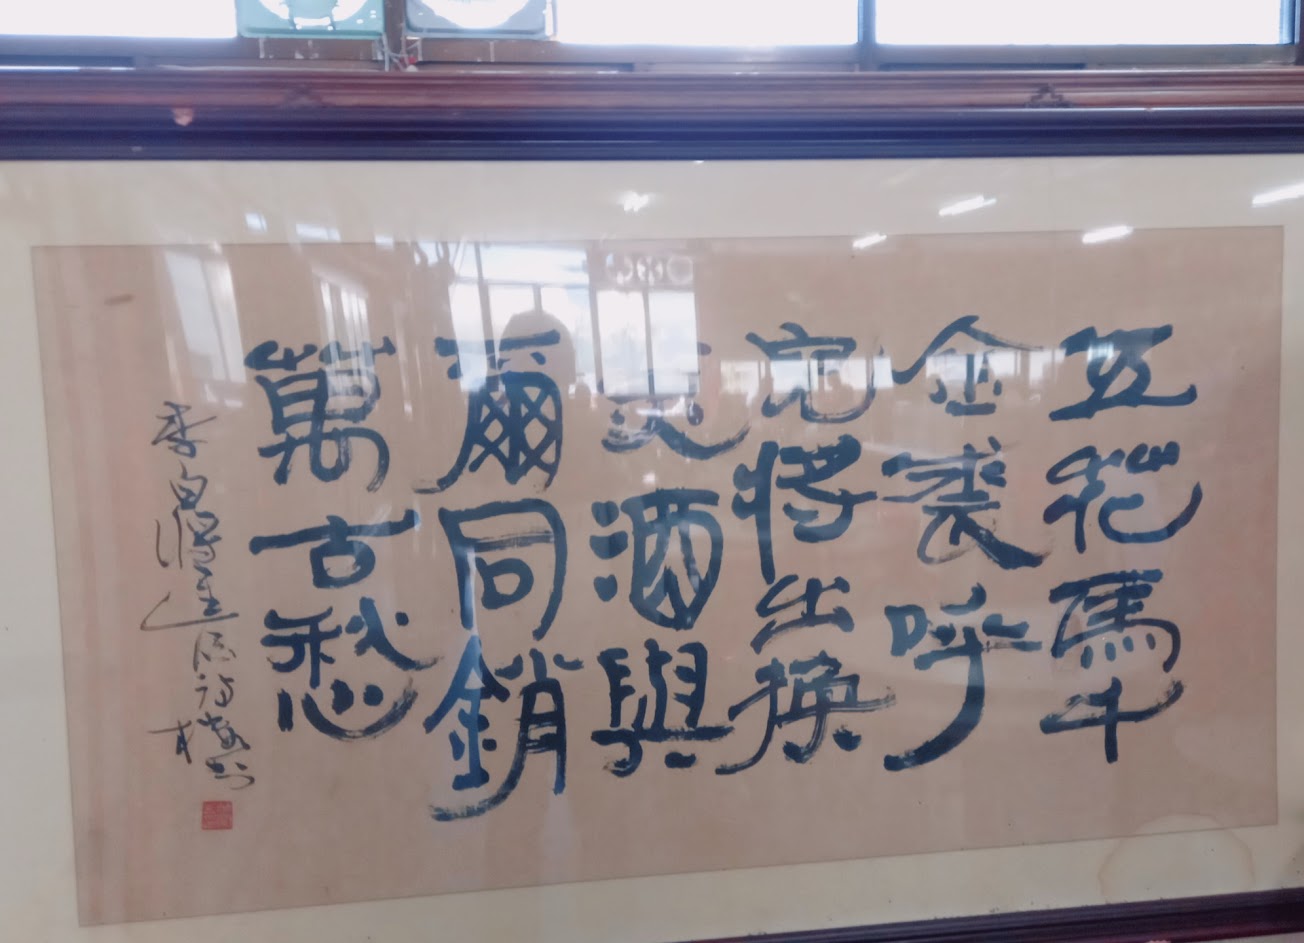 五花馬千
金裘呼
兒將出換
美酒與
爾同銷
萬古愁
李白將進酒詩